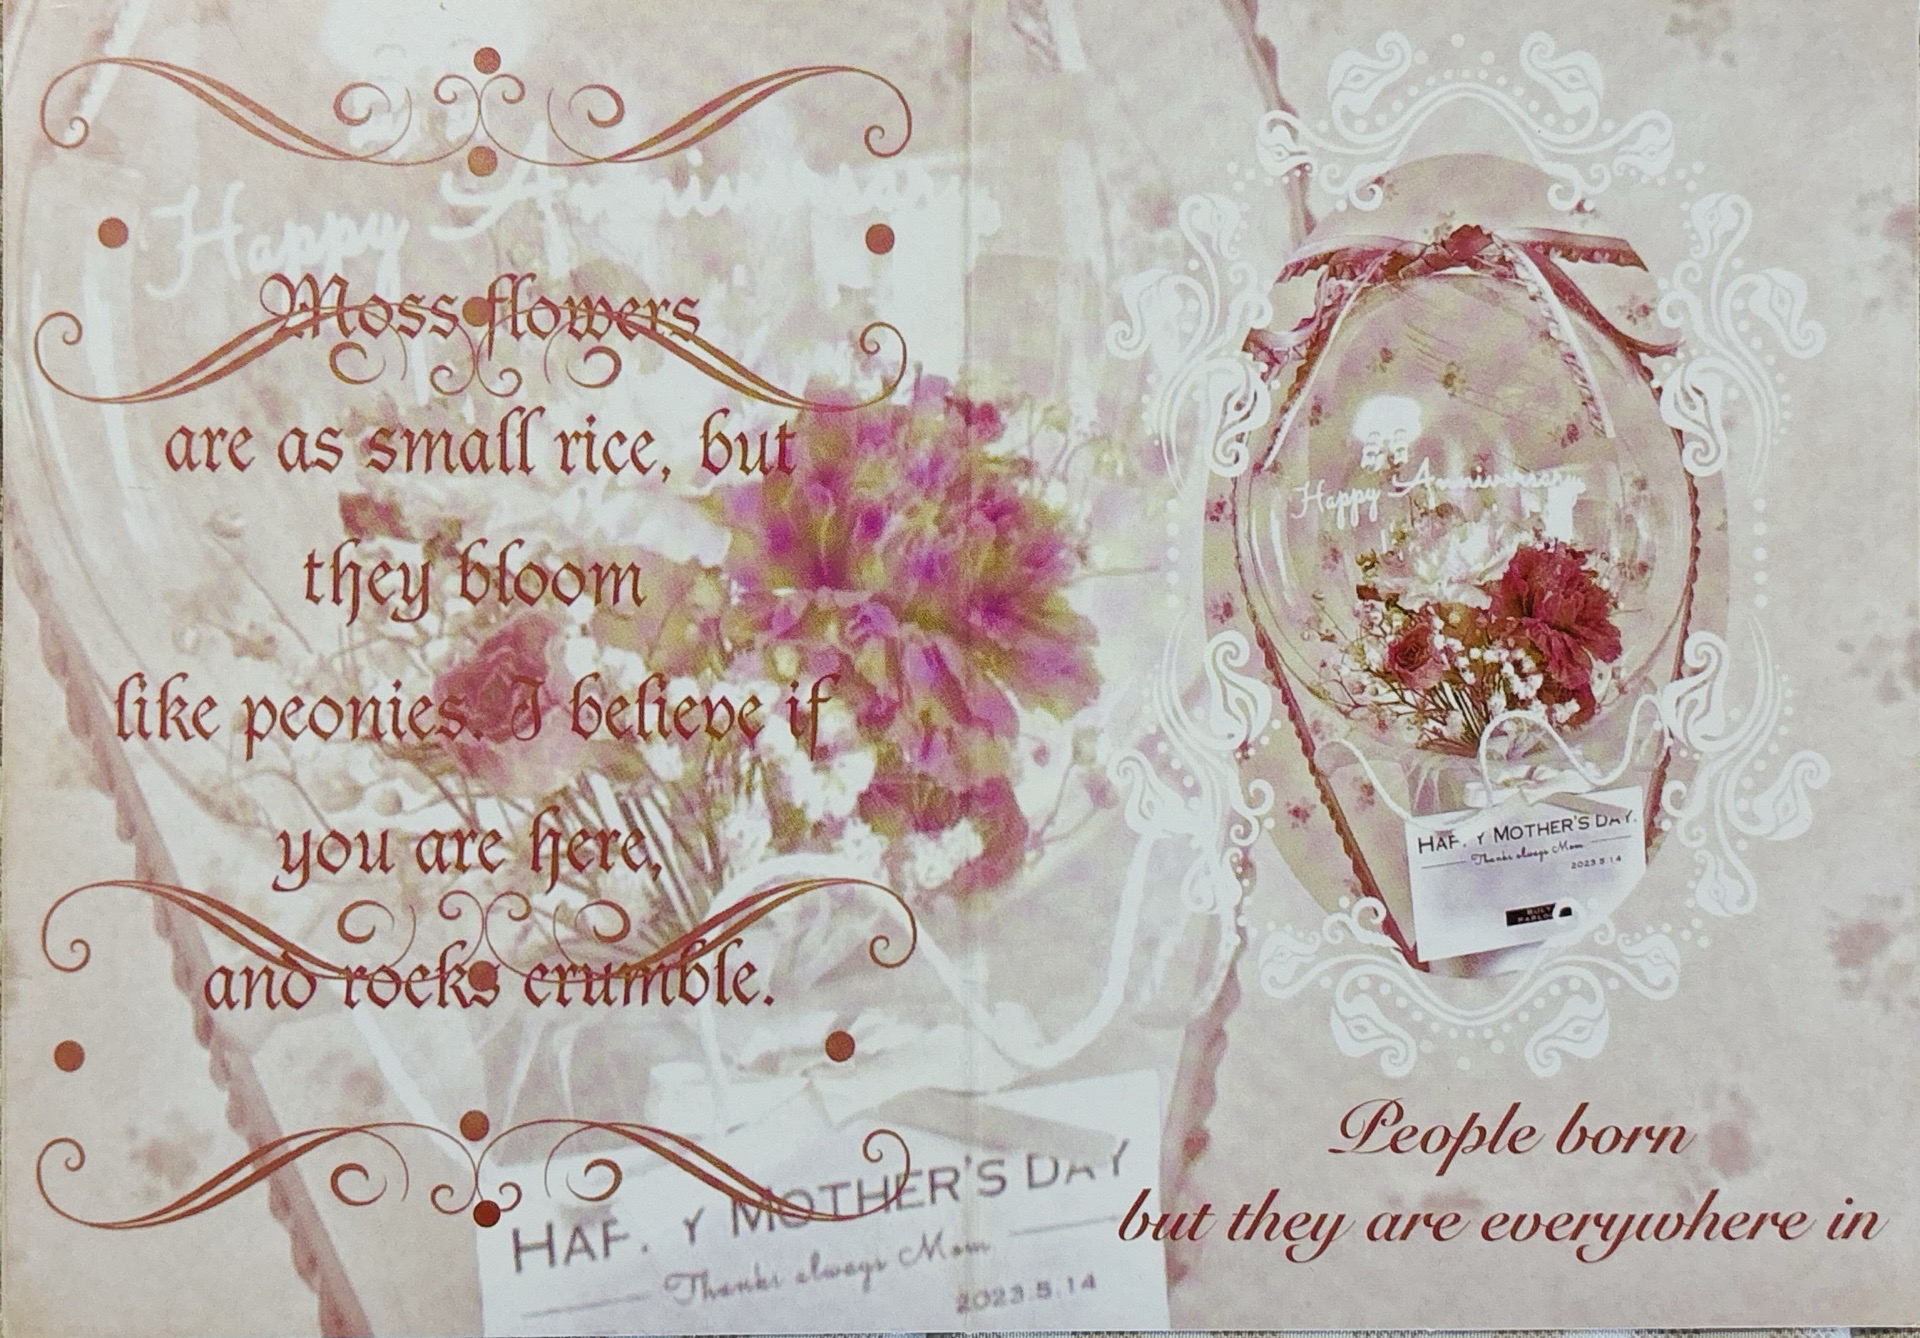 Happy Anniversary
Moss flowers
are as small rice, but
they bloom
like peonies. I believe if
you are here,
and rocks crumble.
HAF. Y MOTHER'S DAY
Thanks always Mom
2023.5.14
Happy Anniversary
HAF. Y MOTHER'S DAY.
Thanks always Mom
2023.5.14
People born
but they are everywhere in